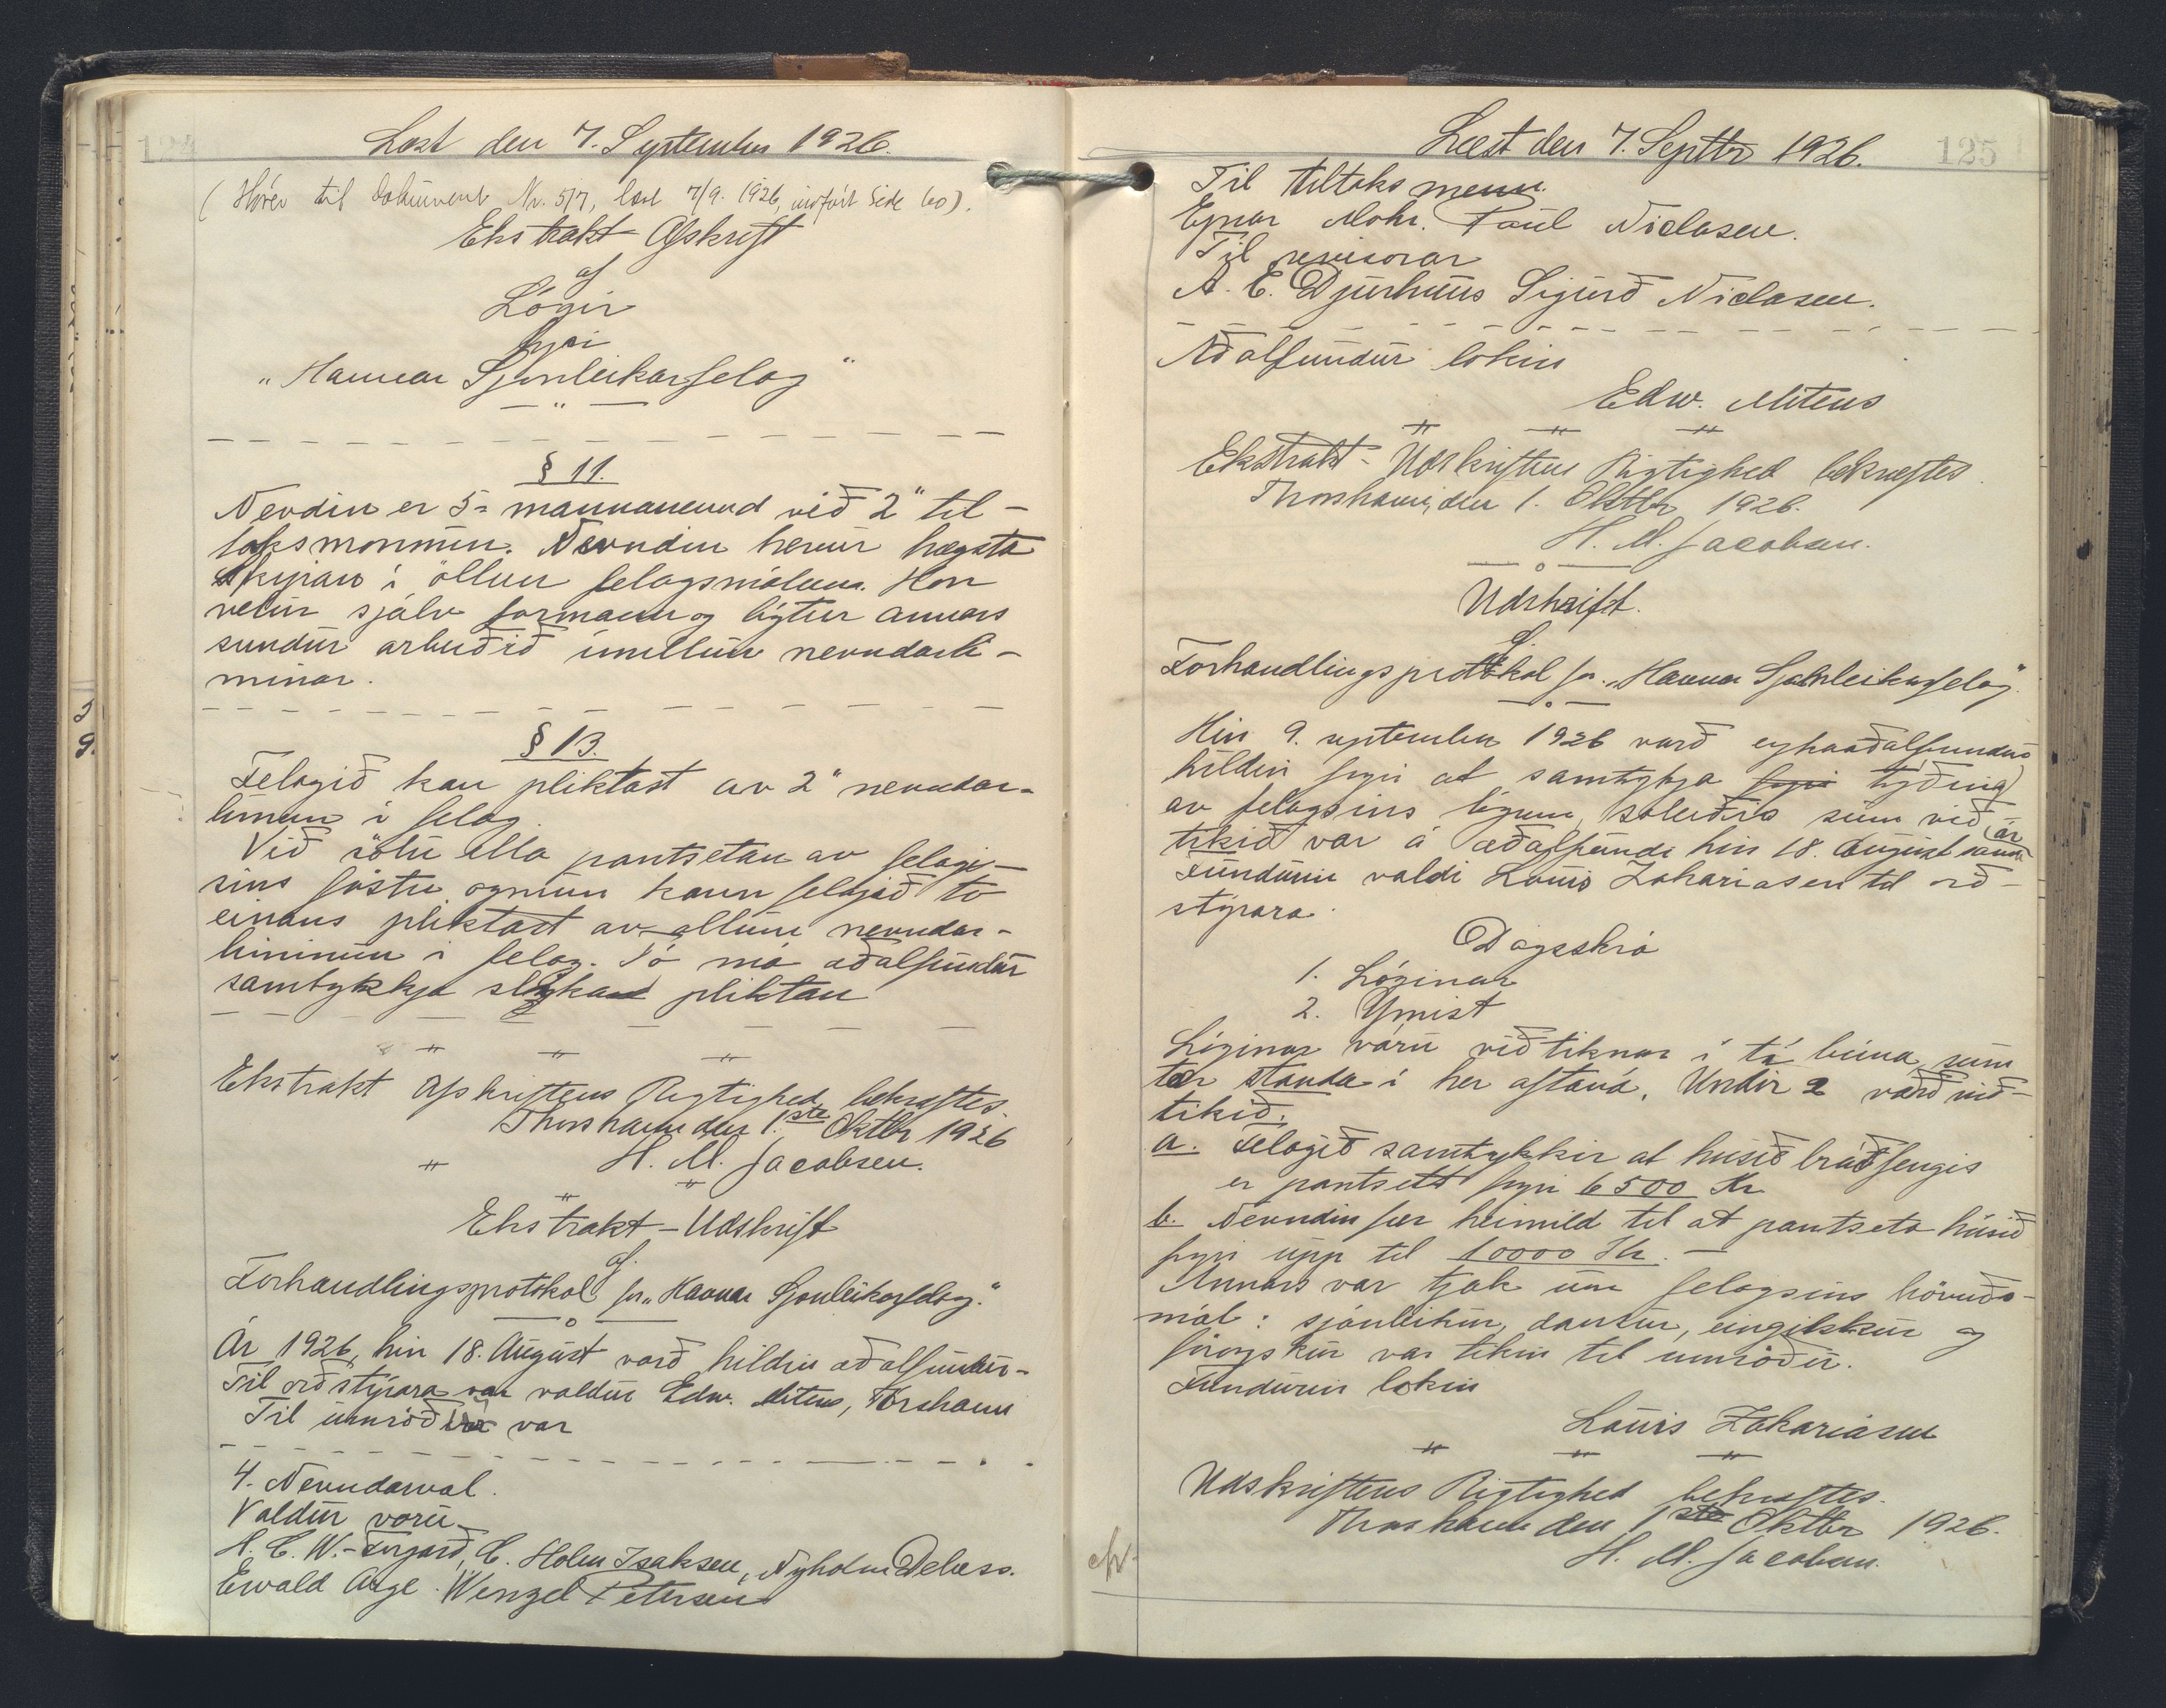 124
Læst den 7. September 1926.
(Hører til Dokument Nr. 517, læst 7/9. 1926, indført Side 60).
Ekstrakt Afskrift
af
Lógir
fyri
"Havnar Sjónleikarfelag"
§ 11.
Nevndin er 5-mannanevnd við 2" til-
taksmonnun. Nevndin hevur hægsta
skipan í öllum felagsmálum. Hon
velur sjálv formann og býtur annars
sundur arbeiðið ímillum nevndarli-
minar.
§ 13.
Felagið kan pliktast av 2" nevndar-
limun í felag.
Við sölu ella pantsetan av felagi-
sins föstu ognum kann felagið tó
einans pliktast av öllum nevndar-
limimum í felag. Tó má aðalfundur
samtykkja slíka pliktan
Ekstrakt Afskriftens Rigtighed bekræftes.
Thorshavn den 1.ste Oktbr 1926
H. M. Jacobsen.
Ekstrakt-Udskrift
af
Forhandlingsprotokol for "Havnar Sjónleikarfelag."
Ár 1926, hin 18. August varð hildin aðalfundur-
Til orðstýrara var valdur Edw. Mitens, Tórshavn
Til umrøðu var
4. Nevndarval.
Valdir vóru
H. C. W.- Tórgarð, C. Holm Isaksen, Nyholm Debess.
Ewald Arge. Wenzel Petersen
125
Læst den 7. Septbr 1926.
Til tiltaksmenn.
Ejnar Mohr. Poul Niclasen.
Til revisorar
A. C. Djurhuus Sigurð Niclasen.
Aðalfundur lokin
Edw. Mitens
Ekstrakt-Udskriftens Rigtighed bekræftes.
Thorshavn, den 1. Oktbr 1926.
H. M. Jacobsen.
Udskrift.
af
Forhandlingsprotokol for "Havnar Sjónleikarfelag".
Hin 9. september 1926 varð eykaaðalfundur
hildin fyri at samtykkja fyri týðing
av felagsins lógum, soleiðis sum við-
tikið var á aðalfundi hin 18. August sama ár
Fundurin valdi Louis Zakariasen til orð-
stýrara.
Dagsskrá
1. Lóginar
2. Ymist
Lóginar vóru viðtiknar í tí búna, sum
tær standa í her aftaná. Undir 2 varð við-
tikið.
a. Felagið samtykkir at húsið bráðfengis
er pantsett fyri 6500 Kr
b. Nevndin fær heimild til at pantseta húsið
fyri upp til 10000 Kr. -
Annars var tjak um felagsins høvuðs-
mál: sjónleikur, dansur, eingikkur og
føroyskur var tikin til umrøðu.
Fundurin lokin
Louis Zakariasen
Udskriftens Rigtighed bekræftes.
Thorshavn den 1ste Oktbr 1926.
H. M. Jacobsen.